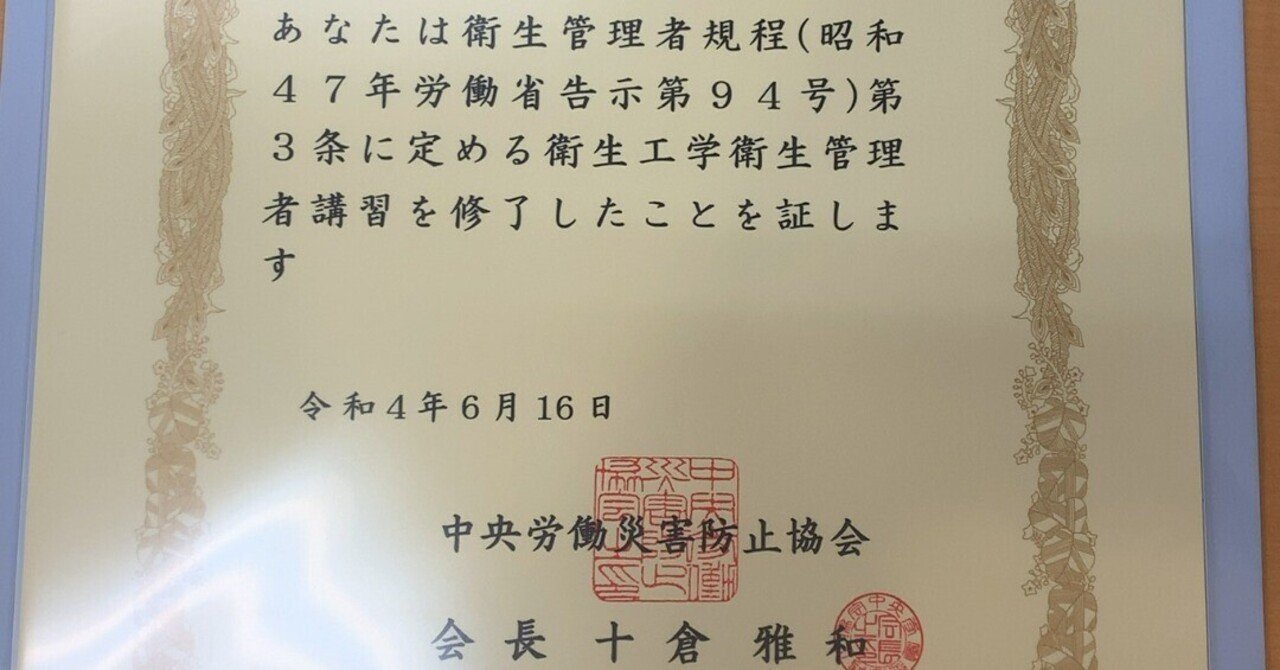 あなたは衛生管理者規程(昭和
47年労働省告示第94号)第
3条に定める衛生工学衛生管理
者講習を修了したことを証しま
す
令和4年6月16日
中央労働災害防止協会
会長 十倉雅和